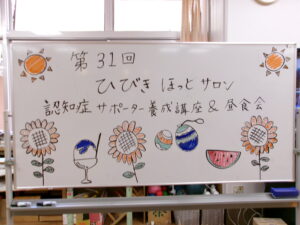 第31回
ひびき ほっと サロン
認知症 サポーター 養成講座 & 昼食会